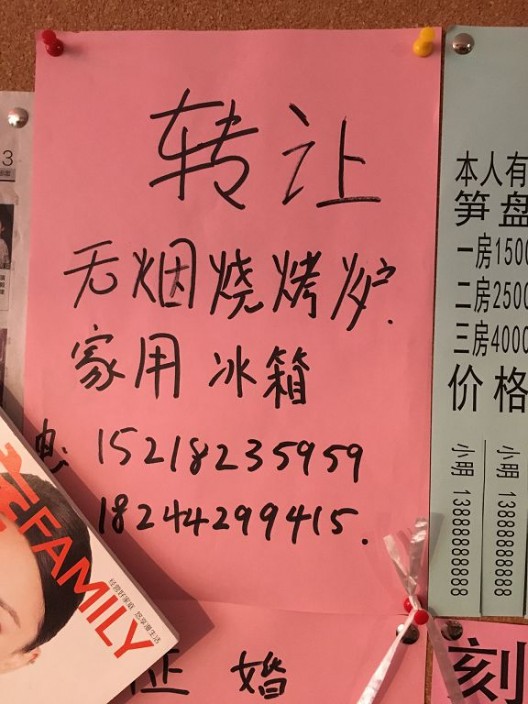 转让
无烟烧烤炉.
家用冰箱
电 15218235959
18244299415.
本人有
笋盘
一房1500
二房2500
三房4000
价格
小明 13888888888
小明 13888888888
FAMILY
证婚
刻
3